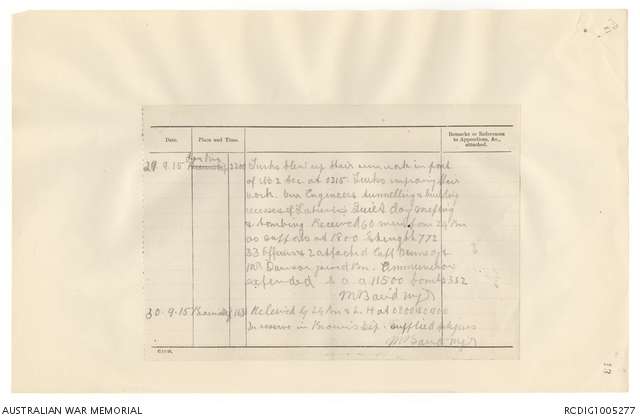 Date.
Place and Time.
Remarks or References
to Appendices, &c.,
attached.
29.9.15 2200 Turks blew up their own work in front
of No 2 Sec. at 0315. Turks improving their
work. Our Engineers tunnelling & building
recesses & latrines Quiet day
& bombing Received 60 men from 24 Bn
as supports at 1800 Strength 772
33 Officers 2 attached Capt
Mr Dawson joined Bn. Ammunition
expended S. a. a 11500 bombs 352
M Baird Mjr
30.9.15 Relieved by 24 Bn & L. H at
In reserve in Brown's Dip. supplied
M Baird Mjr
AUSTRALIAN WAR MEMORIAL
RCDIG1005277